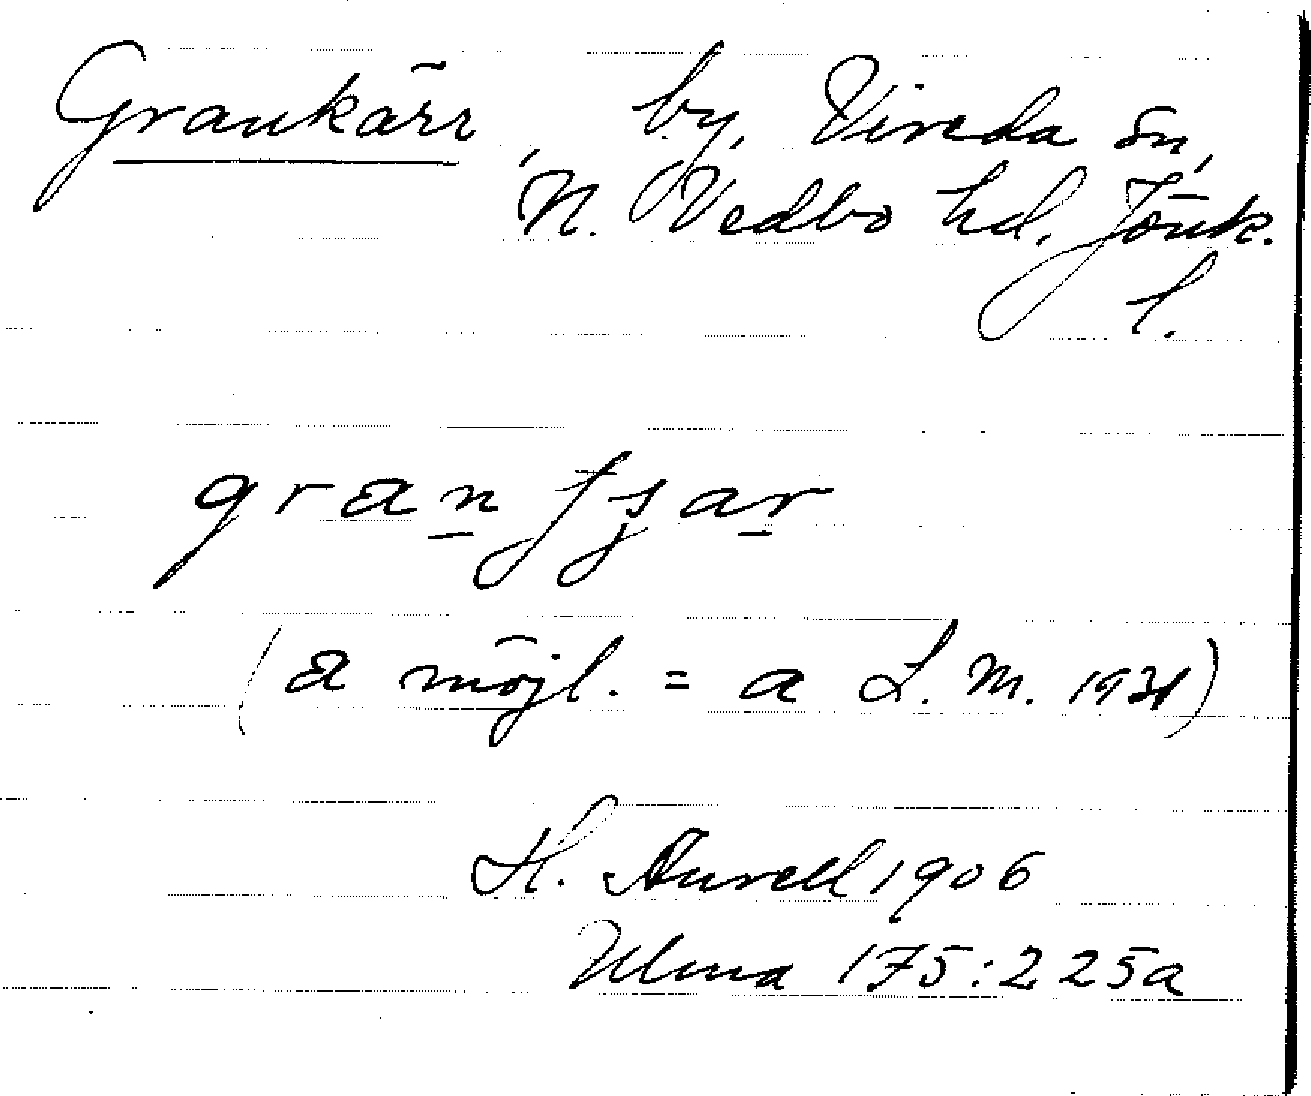 Grankärr, by, Vireda sn,
N. Vedbo hd. Jönk.
l.
(a möjl. = a L. M. 1931)
H. Aurell 1906
Ulma 175:225a